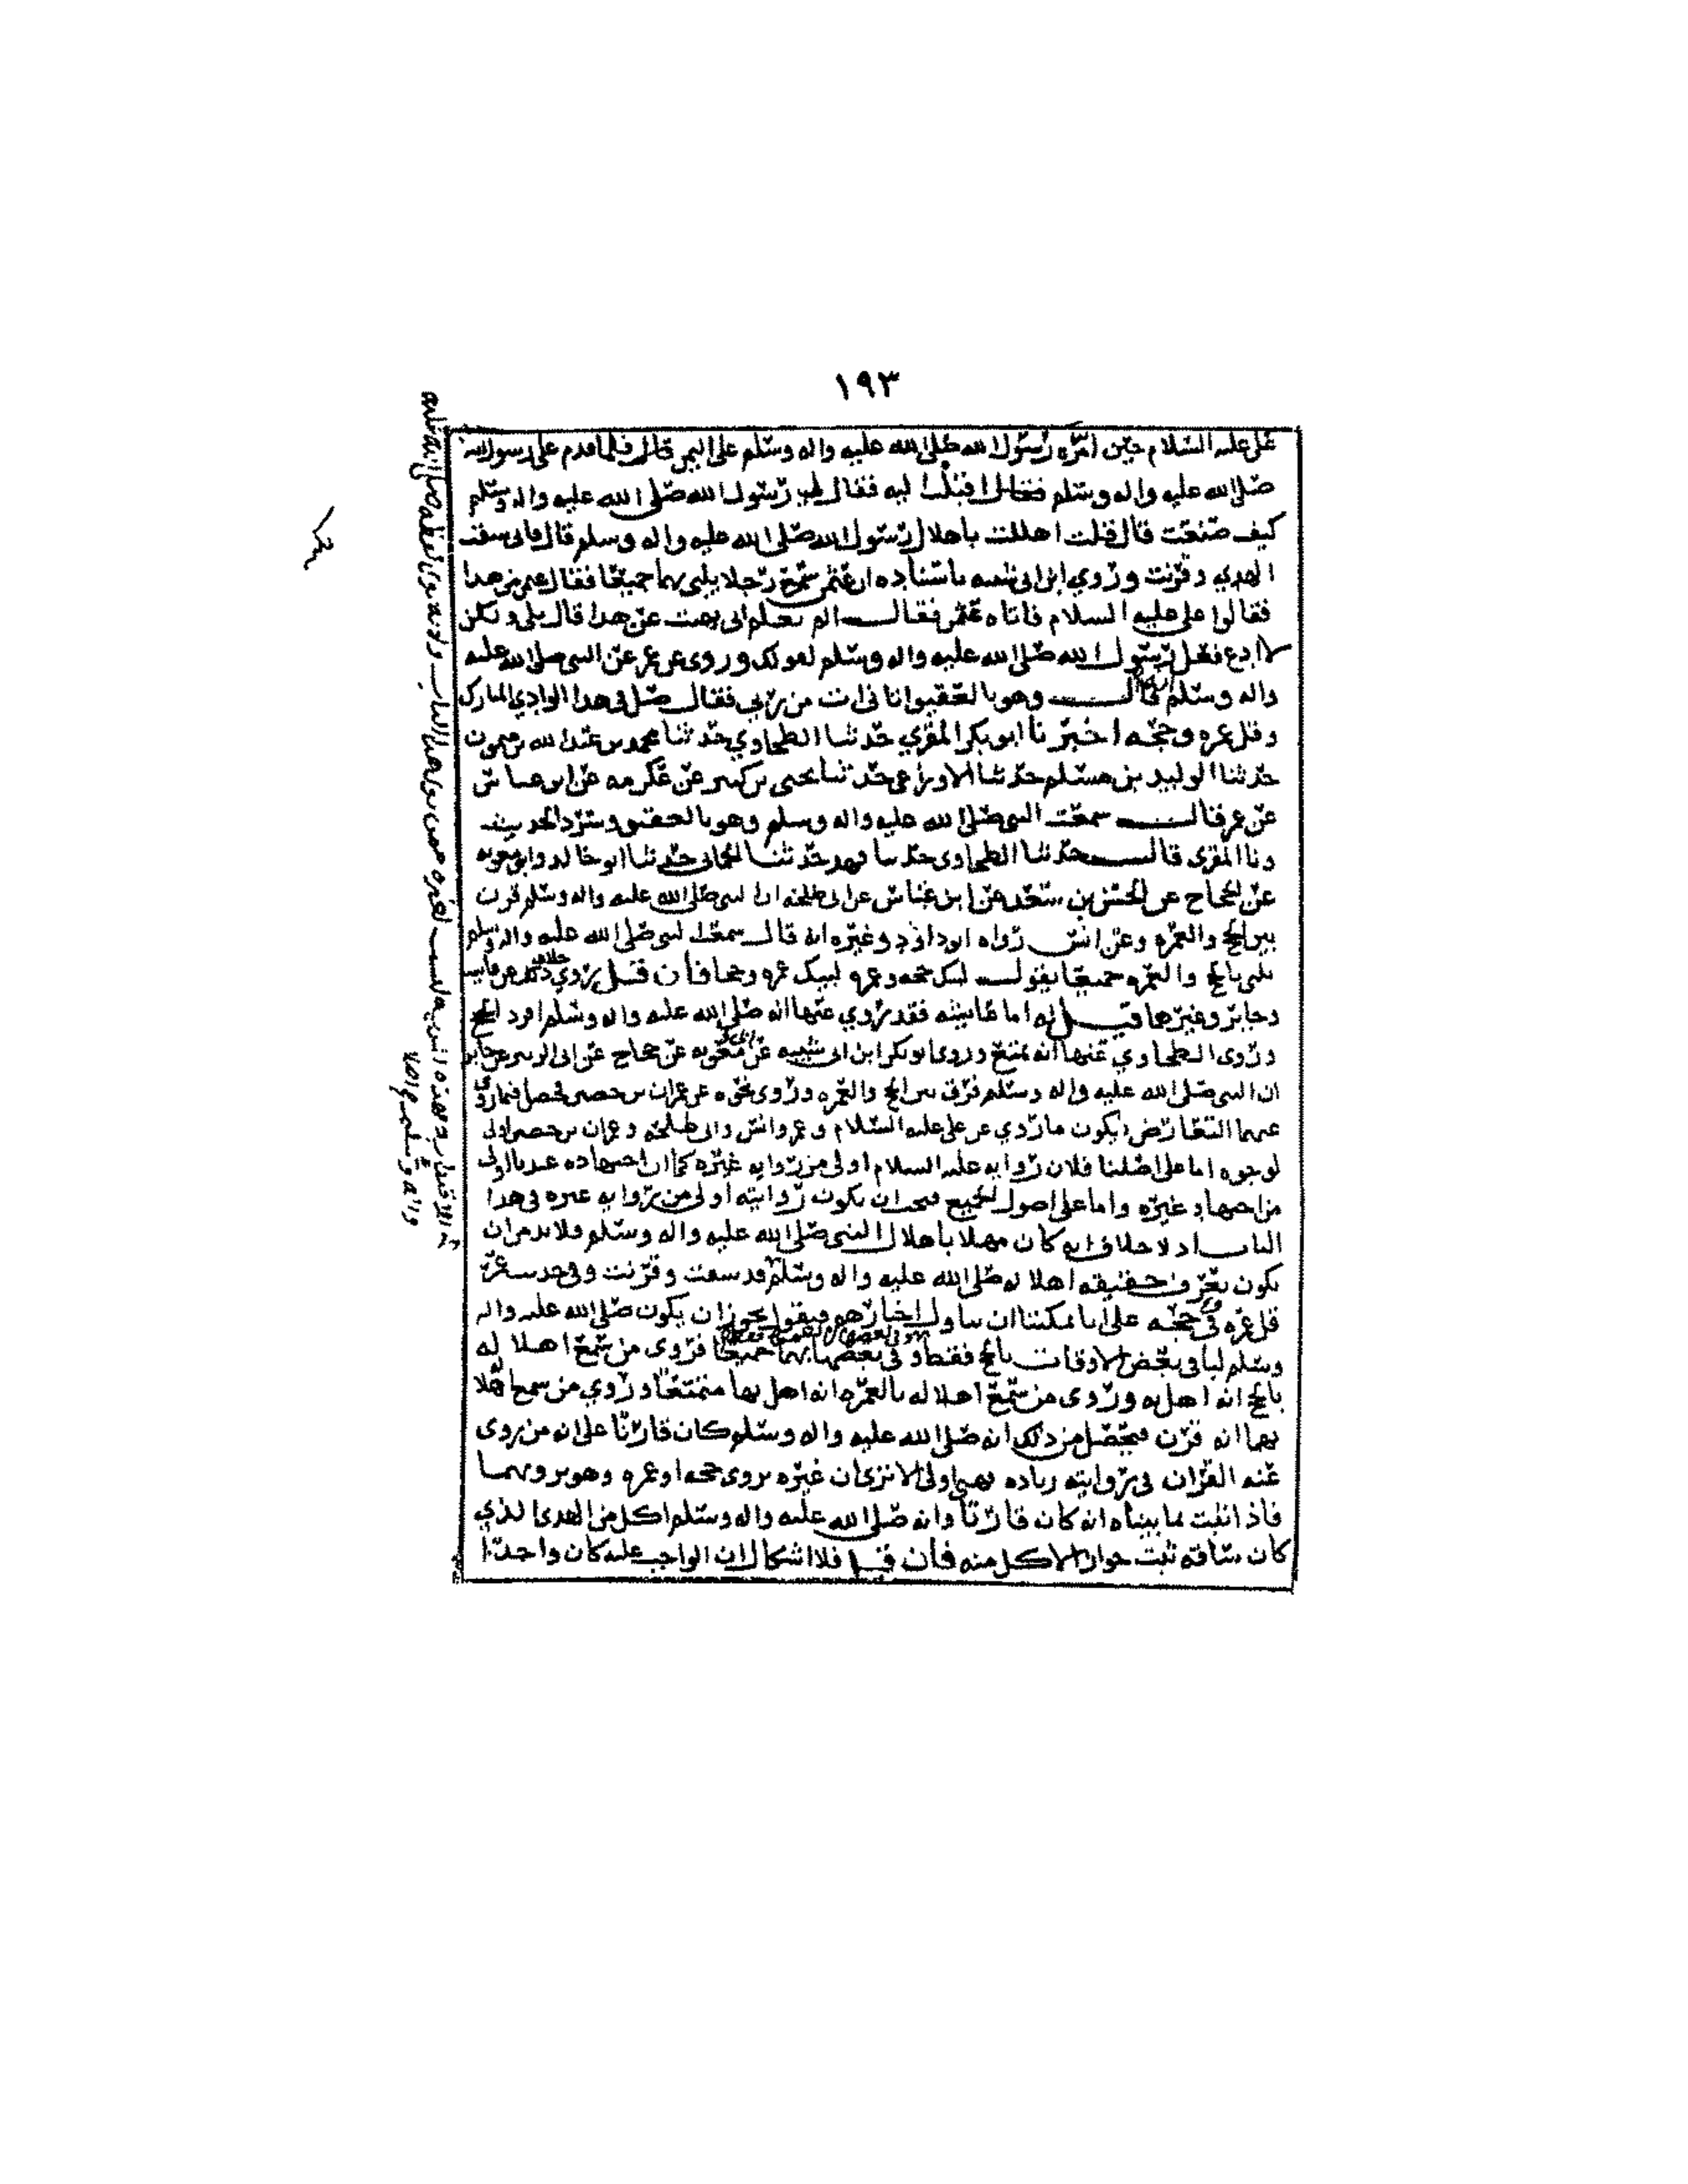 ١٩٣
على عليه السلام حين امره رسول الله صلى الله عليه واله وسلم على اليمن قال فلما قدم على رسول الله
صلى الله عليه واله وسلم فقال لي رسول الله صلى الله عليه واله وسلم
كيف صنعت قال قلت اهللت باهلال رسول الله صلى الله عليه واله وسلم قال فاني سقت
الهدي وقرنت وروي ابن ابي شيبه باسناده ان عثمن سمع رجلا يلبي بهما جميعا فقال عثمن من هدا
فقالوا علي عليه السلام فاتاه عثمن فقال الم تعلم اني نهيت عن هدا قال بلى ولكن
لا ادع فعل رسول الله صلى الله عليه واله وسلم لقولك وروى عن عمر عن النبي صلى الله عليه
واله وسلم انه قال وهو بالعقيق اتاني ات من ربي فقال صل في هدا الوادي المبارك
وقل عمره وحجه اخبرنا ابو بكر المقري حدثنا الطحاوي حدثنا محمد بن عبد الله بن ميمون
حدثنا الوليد بن مسلم حدثنا الاوزاعي حدثنا يحيى بن كثير عن عكرمه عن ابن عباس
عن عمر قال سمعت النبي صلى الله عليه واله وسلم وهو بالعقيق وسرد الحديث
ونا المقري قال حدثنا الطحاوي حدثنا فهد حدثنا الحماني حدثنا ابو خالد وابو معويه
عن الحجاج عن الحسن بن سعد عن ابن عباس عن ابي طلحه ان النبي صلى الله عليه واله وسلم قرن
بين الحج والعمره وعن انس رواه ابو داود وغيره انه قال سمعت النبي صلى الله عليه واله وسلم
يلبي بالحج والعمره جميعا يقول لبيك حجه وعمره لبيك عمره وحجا فان قيل روي خلاف ذلك عن عايشه
وجابر وغيرهما قيل له اما عايشه فقد روي عنها انه صلى الله عليه واله وسلم افرد الحج
وروى الطحاوي عنها انه تمتع وروى ابو بكر ابن ابي شيبه عن ابي معويه عن حجاج عن ابي الزبير عن جابر
ان النبي صلى الله عليه واله وسلم قرن بين الحج والعمره وروى نحوه عن عمران بن حصين فحصل فيما روي
عنهما التعارض فيكون ما روي عن علي عليه السلام وعمر وانس وابي طلحه وعمران بن حصين اولى
لوجوه اما على اصلنا فلان روايه عليه السلام اولى من روايه غيره كما ان اجتهاده عندنا اولى
من اجتهاد غيره واما على اصول الجميع فيجب ان يكون روايته اولى من روايه غيره في هدا
الباب اد لا خلاف انه كان مهلا باهلال النبي صلى الله عليه واله وسلم ولا بد من ان
يكون يعرف حقيقه اهلاله صلى الله عليه واله وسلم وقد سقت وقرنت وفي حديث عمر
قل عمره في حجه على انا يمكننا ان نتاول اخبارهم فيقول يجوز ان يكون صلى الله عليه واله
وسلم لبا في بعض الاوقات بالحج فقط وفي بعضها بهما جميعا فروى من سمع اهلاله
بالحج انه اهل به وروى من سمع اهلاله بالعمره انه اهل بها متمتعا وروي من سمع اهلاله
بهما انه قرن فيحصل من ذلك انه صلى الله عليه واله وسلم كان قارنا على ان من روى
عنه القران في روايته زياده فهي اولى الا ترى ان غيره يروي حجه او عمره وهو يرويهما
فاذا ثبت بما بيناه انه كان قارنا وانه صلى الله عليه واله وسلم اكل من الهدي الذي
كان ساقه ثبت جواز الاكل منه فان قيل فلا اشكال ان الواجب عليه كان واحدا
واله وسلم